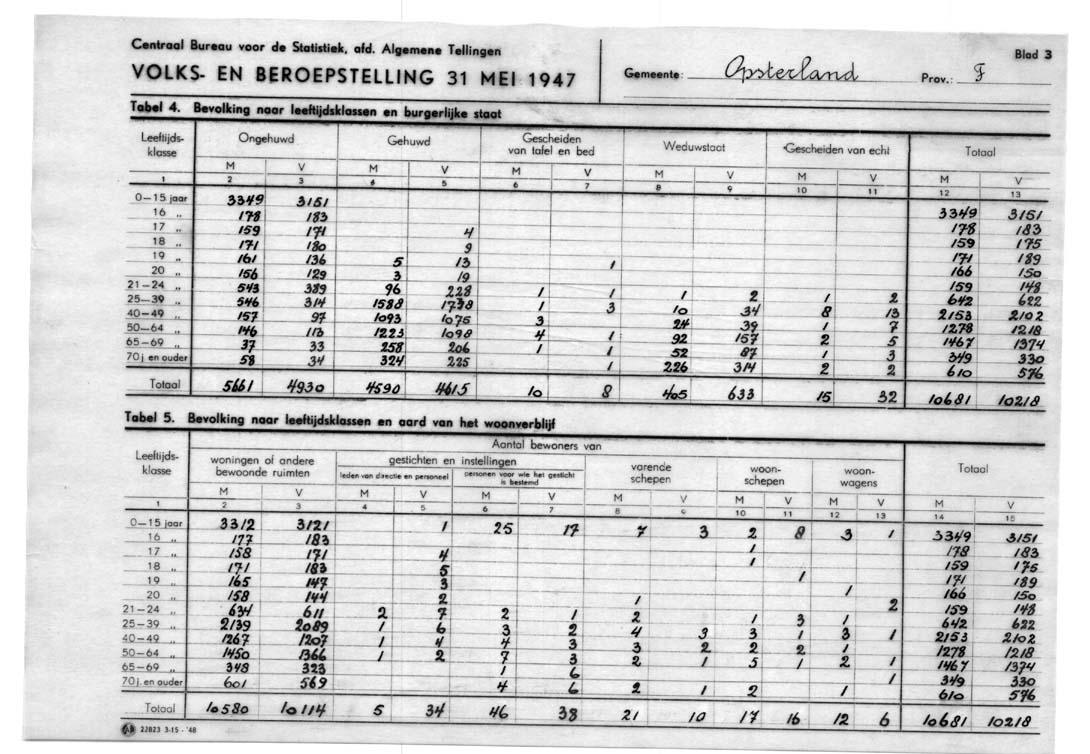 Centraal Bureau voor de Statistiek, afd. Algemene Tellingen
Blad 3
VOLKS- EN BEROEPSTELLING 31 MEI 1947
Gemeente: Opsterland Prov.: F
Tabel 4. Bevolking naar leeftijdsklassen en burgerlijke staat
Leeftijds-klasse Ongehuwd Gehuwd Gescheiden van tafel en bed Weduwstaat Gescheiden van echt Totaal
M V M V M V M V M V M V
1 2 3 4 5 6 7 8 9 10 11 12 13
0—15 jaar 3349 3151 3349 3151
16 „ 178 183 178 183
17 „ 159 171 4 159 175
18 „ 171 180 9 171 189
19 „ 161 136 5 13 1 166 150
20 „ 156 129 3 19 159 148
21—24 „ 543 389 96 228 1 1 1 2 1 2 642 622
25—39 „ 546 314 1588 1738 1 3 10 34 8 13 2153 2102
40—49 „ 157 97 1093 1075 3 24 39 1 7 1278 1218
50—64 „ 146 113 1223 1098 4 1 92 157 2 5 1467 1374
65—69 „ 37 33 258 206 1 1 52 87 1 3 349 330
70 j. en ouder 58 34 324 225 1 226 314 2 2 610 576
Totaal 5661 4930 4590 4615 10 8 405 633 15 32 10681 10218
Tabel 5. Bevolking naar leeftijdsklassen en aard van het woonverblijf
Leeftijds-klasse Aantal bewoners van Totaal
woningen of andere bewoonde ruimten gestichten en instellingen varende schepen woon-schepen woon-wagens
leden van directie en personeel personen voor wie het gesticht is bestemd
M V M V M V M V M V M V M V
1 2 3 4 5 6 7 8 9 10 11 12 13 14 15
0—15 jaar 3312 3121 1 25 17 7 3 2 8 3 1 3349 3151
16 „ 177 183 1 178 183
17 „ 158 171 4 1 159 175
18 „ 171 183 5 1 171 189
19 „ 165 147 3 1 166 150
20 „ 158 144 2 1 2 159 148
21—24 „ 634 611 2 7 2 1 2 1 3 1 642 622
25—39 „ 2139 2089 1 6 3 2 4 3 3 1 3 1 2153 2102
40—49 „ 1267 1207 1 4 4 3 3 2 2 2 1 1278 1218
50—64 „ 1450 1366 1 2 7 3 2 1 5 1 2 1 1467 1374
65—69 „ 348 323 1 6 1 349 330
70 j. en ouder 601 569 4 6 2 1 2 1 610 576
Totaal 10580 10114 5 34 46 38 21 10 17 16 12 6 10681 10218
22823 3-15 - '48